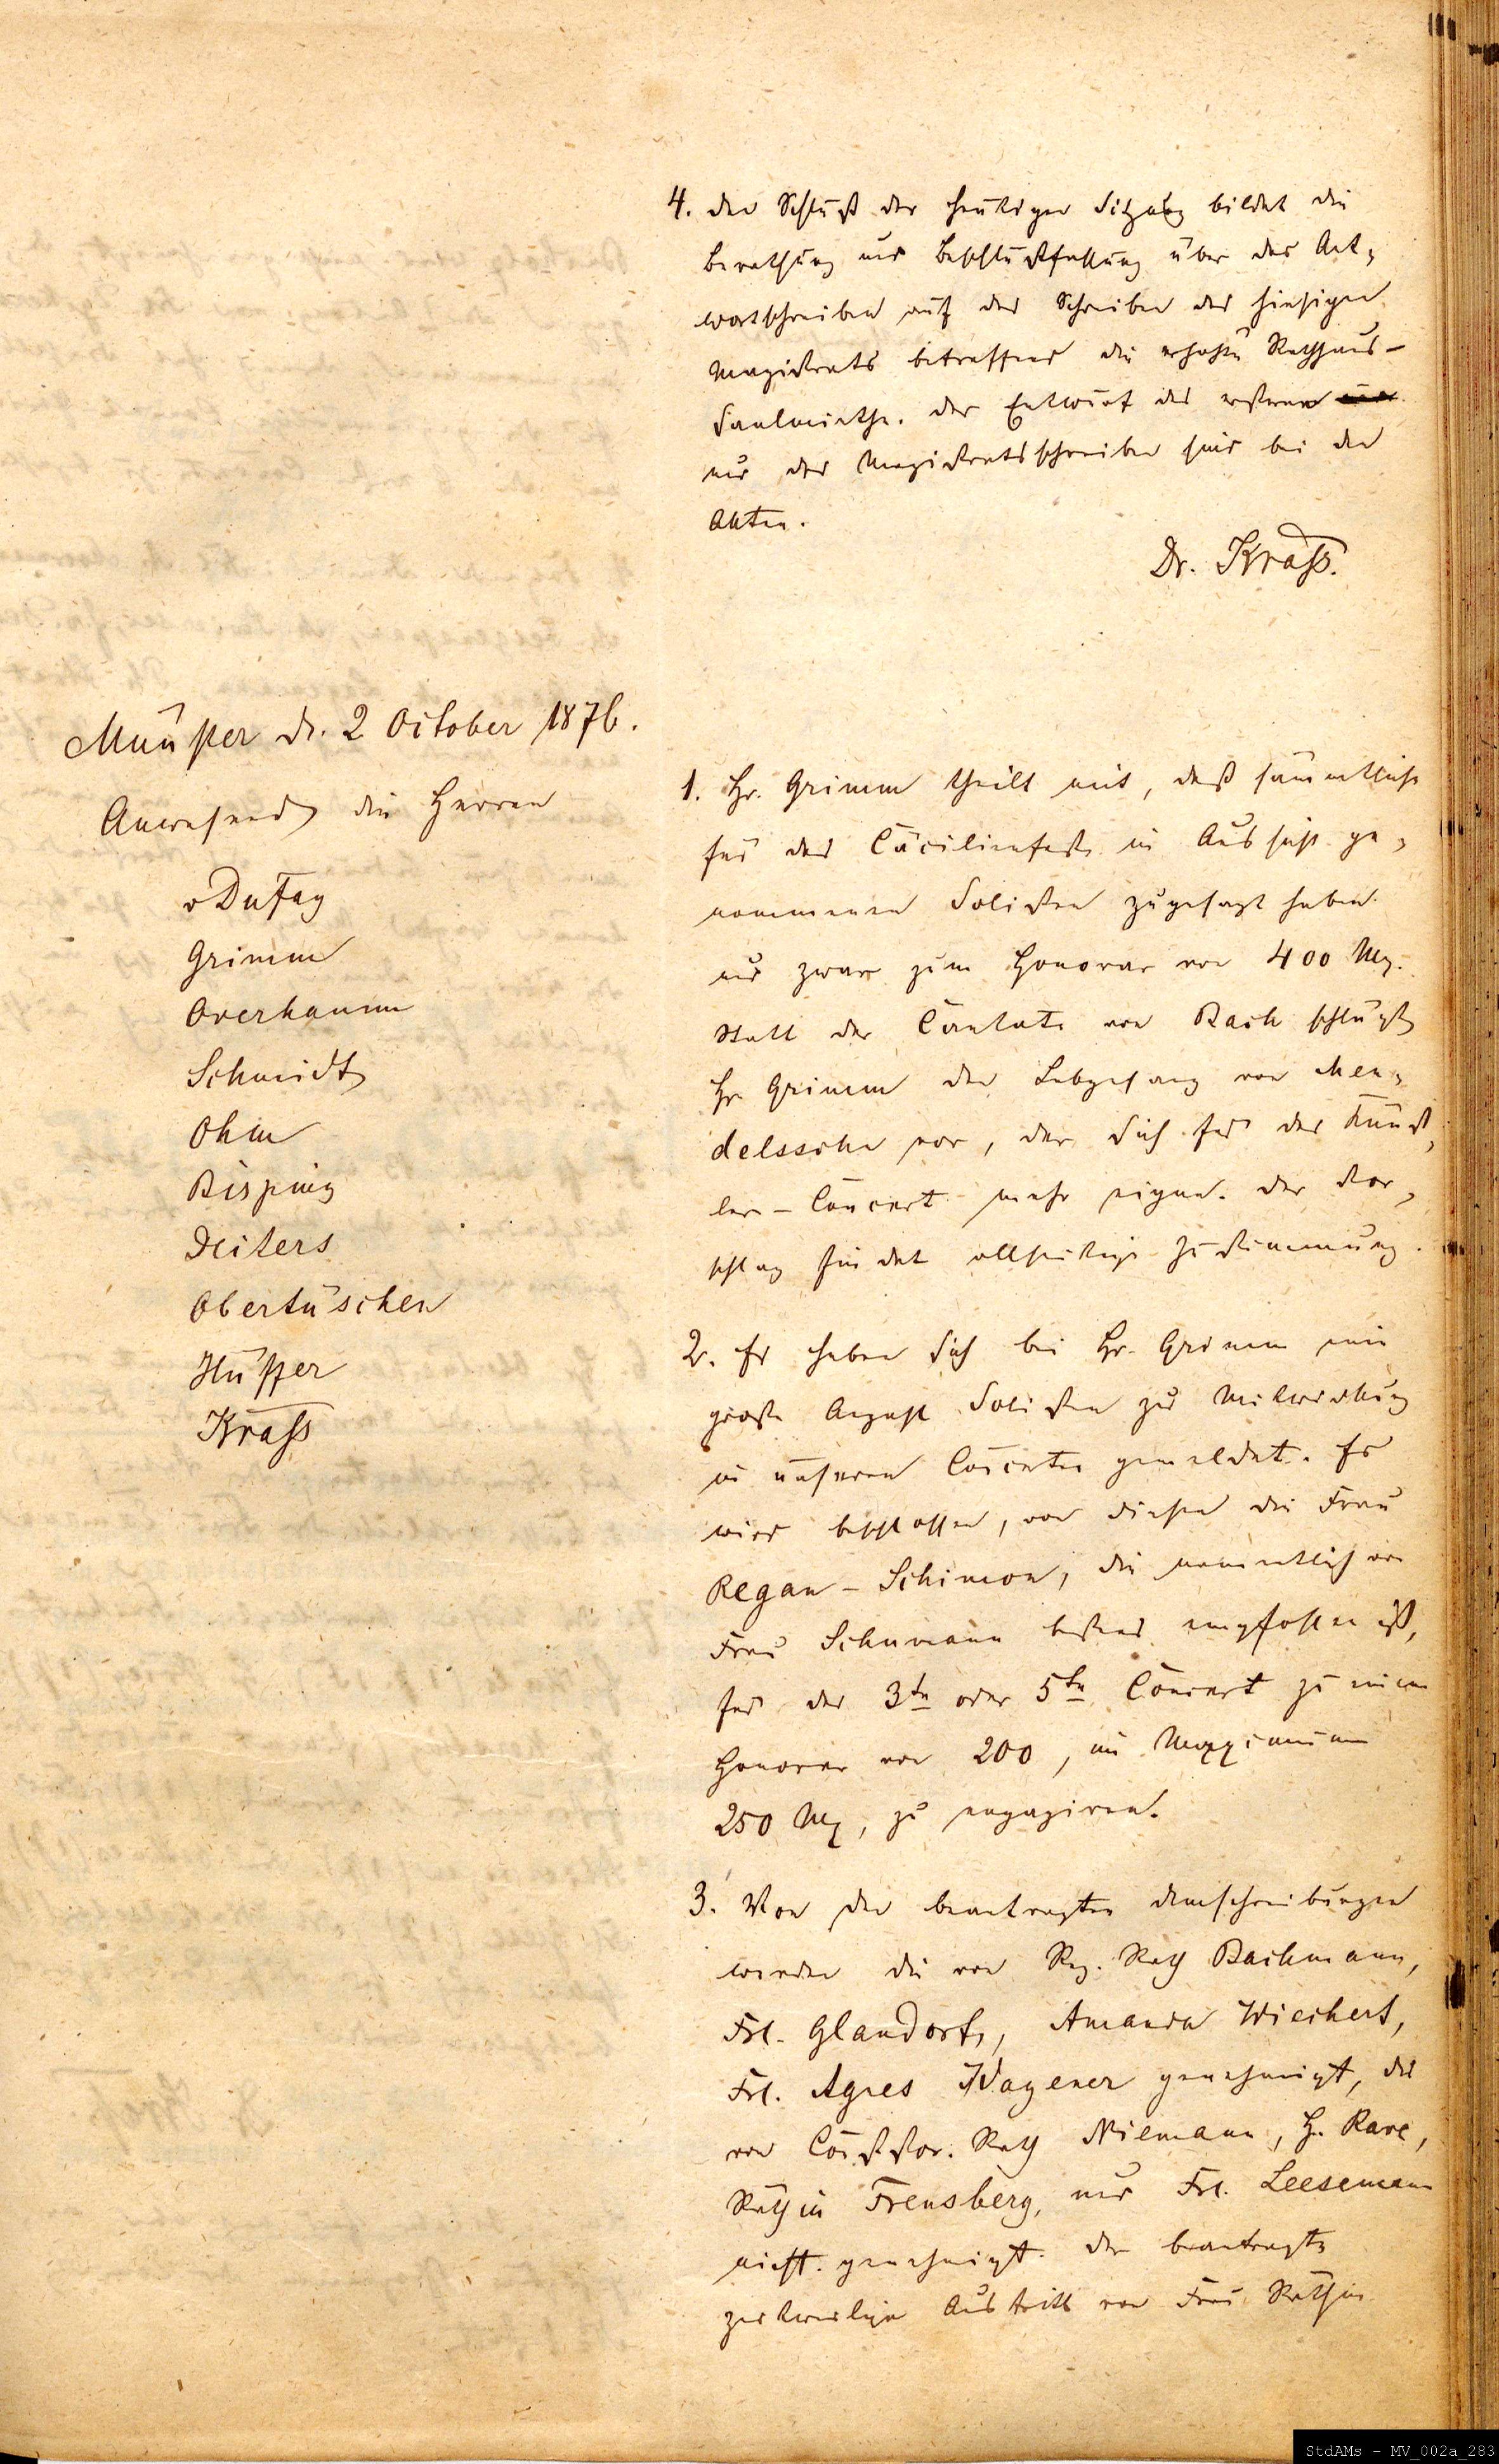 4. Den Schluß der heutigen Sitzung bildet die
Berathung und Beschlußfassung über das Ant-
wortschreiben auf das Schreiben des hiesigen
Magistrats betreffend die erhöhte Rathhaus-
Saalmiethe. Der Entwurf des ersteren
und das Magistratsschreiben sind bei den
Akten.
Dr. Krass.
Münster d. 2 October 1876.
Anwesend die Herren
v DuFay
Grimm
Overhamm
Schmidt
Ohm
Bisping
Deiters
Obertüschen
Hüffer
Krass
1. Hr. Grimm theilt mit, daß sämmtliche
für das Cäcilienfest in Aussicht ge-
nommenen Solisten zugesagt haben
und zwar zum Honorar von 400 Mk.
Statt der Cantate von Bach schlägt
Hr Grimm den Lobgesang von Men-
delssohn vor, der sich für das Künst-
ler-Concert mehr eigne. Der Vor-
schlag findet allseitige Zustimmung.
2. Es haben sich bei Hr. Grimm eine
große Anzahl Solisten zur Mitwirkung
in unseren Concerten gemeldet. Es
wird beschlossen, von diesen die Frau
Regan-Schimon, die namentlich von
Frau Schumann bestens empfohlen ist,
für das 3te oder 5te Concert zu einem
Honorar von 200, im Maximum
250 Mk, zu engagiren.
3. Von den beantragten Umschreibungen
werden die von Reg. Rath Bachmann,
Frl. Glandorff, Amanda Wiechert,
Frl. Agnes Wagener genehmigt, die
von Consistor. Rath Niemann, H. Rave,
Räthin Frensberg, und Frl. Leesemann
nicht genehmigt. Der beantragte
zeitweilige Austritt von Frau Räthin